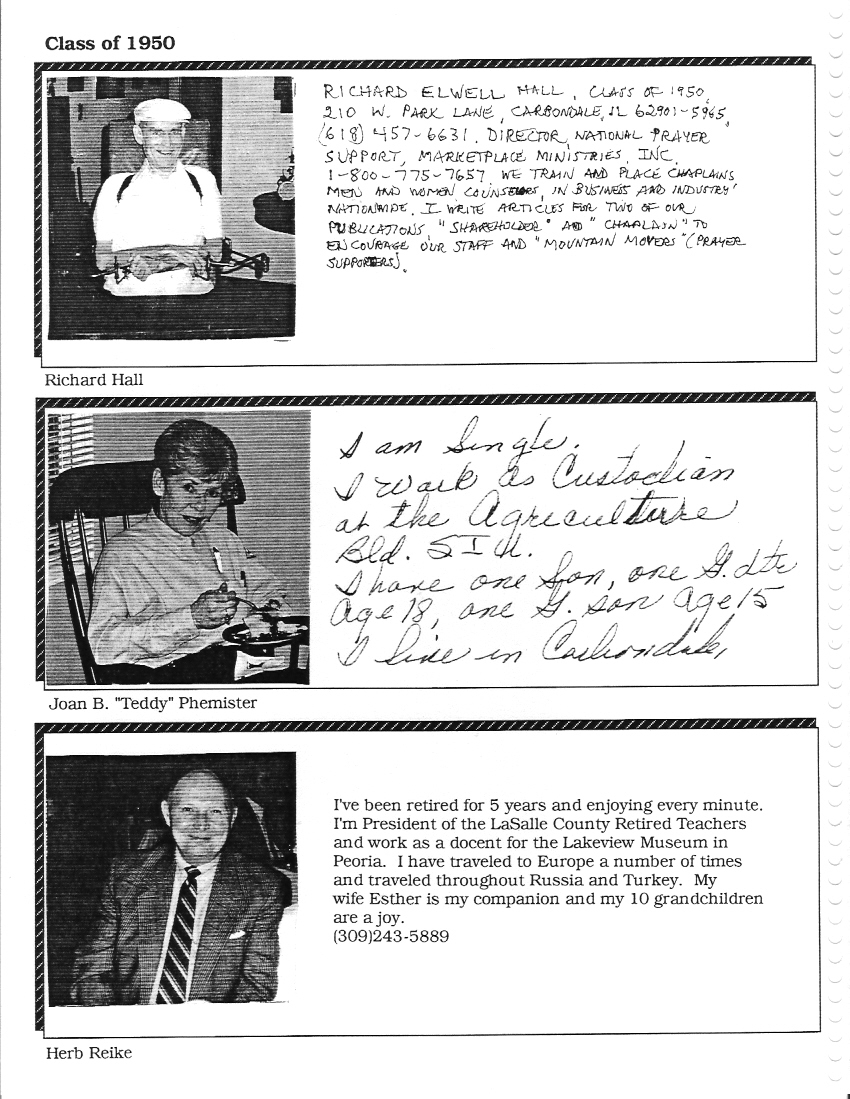 Class of 1950
RICHARD ELWELL HALL, CLASS OF 1950,
210 W. PARK LANE, CARBONDALE, IL 62901-5965,
(618) 457-6631. DIRECTOR, NATIONAL PRAYER
SUPPORT, MARKETPLACE MINISTRIES, INC.
1-800-775-7657. WE TRAIN AND PLACE CHAPLAINS
MEN AND WOMEN COUNSELORS, IN BUSINESS AND INDUSTRY
NATIONWIDE. I WRITE ARTICLES FOR TWO OF OUR
PUBLICATIONS, "SHAREHOLDER" AND "CHAPLAIN" TO
ENCOURAGE OUR STAFF AND "MOUNTAIN MOVERS" (PRAYER
SUPPORTERS).
Richard Hall
I am Single.
I work as Custodian
at the Agriculture
Bld. S I U.
I have one Son, one G. dtr
Age 18, one G. son Age 15
I live in Carbondale,
Joan B. "Teddy" Phemister
I've been retired for 5 years and enjoying every minute.
I'm President of the LaSalle County Retired Teachers
and work as a docent for the Lakeview Museum in
Peoria. I have traveled to Europe a number of times
and traveled throughout Russia and Turkey. My
wife Esther is my companion and my 10 grandchildren
are a joy.
(309)243-5889
Herb Reike